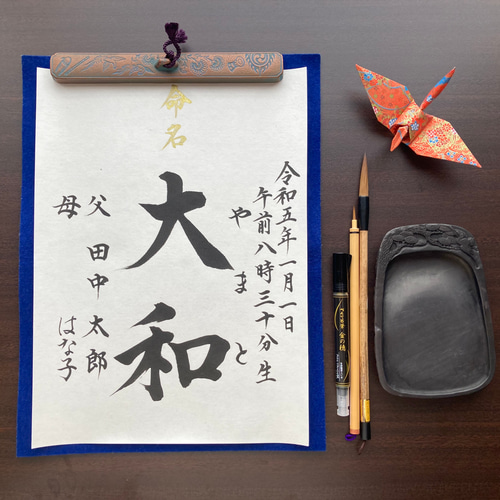 命名
令和五年一月一日
午前八時三十分生
やまと
大和
父 田中 太郎
母 はな子
金の穂